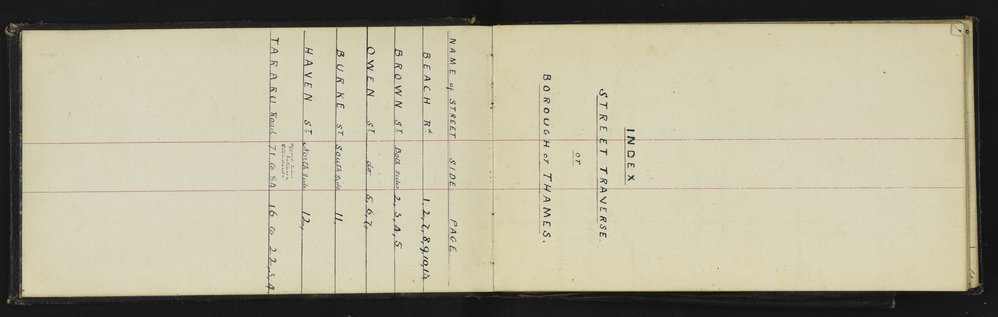 INDEX
OF
STREET TRAVERSE.
BOROUGH OF THAMES.
NAME of STREET SIDE PAGE
BEACH Rd 1, 2, 7, 8, 9, 10, 13,
BROWN ST. Both Sides 2, 3, 4, 5
OWEN ST. do. 5, 6, 7,
BURKE ST South Side 11,
HAVEN ST North Side 12,
TARARU Road 71 to 84 16 to 22, 3, 4